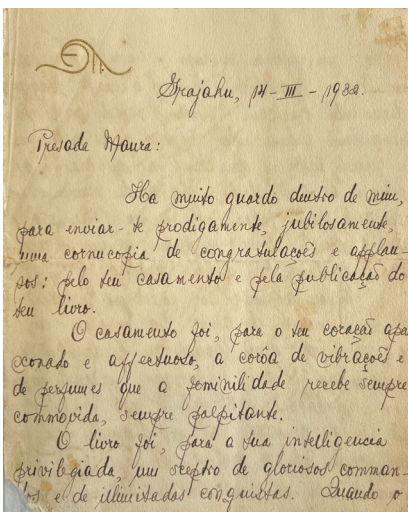 Grajahu, 14-III-1932.
Presada Maura:
Ha muito guardo dentro de mim,
para enviar-te prodigamente, jubilosamente,
uma cornucopia de congratulações e applau-
sos: pelo teu casamento e pela publicação do
teu livro.
O casamento foi, para o teu coração apai
xonado e affectuoso, a corôa de vibrações e
de perfumes que a feminilidade recebe sempre
commovida, sempre palpitante.
O livro foi, para a tua intelligencia
privilegiada, um sceptro de gloriosos comman-
dos e de illimitadas conquistas. Quando o